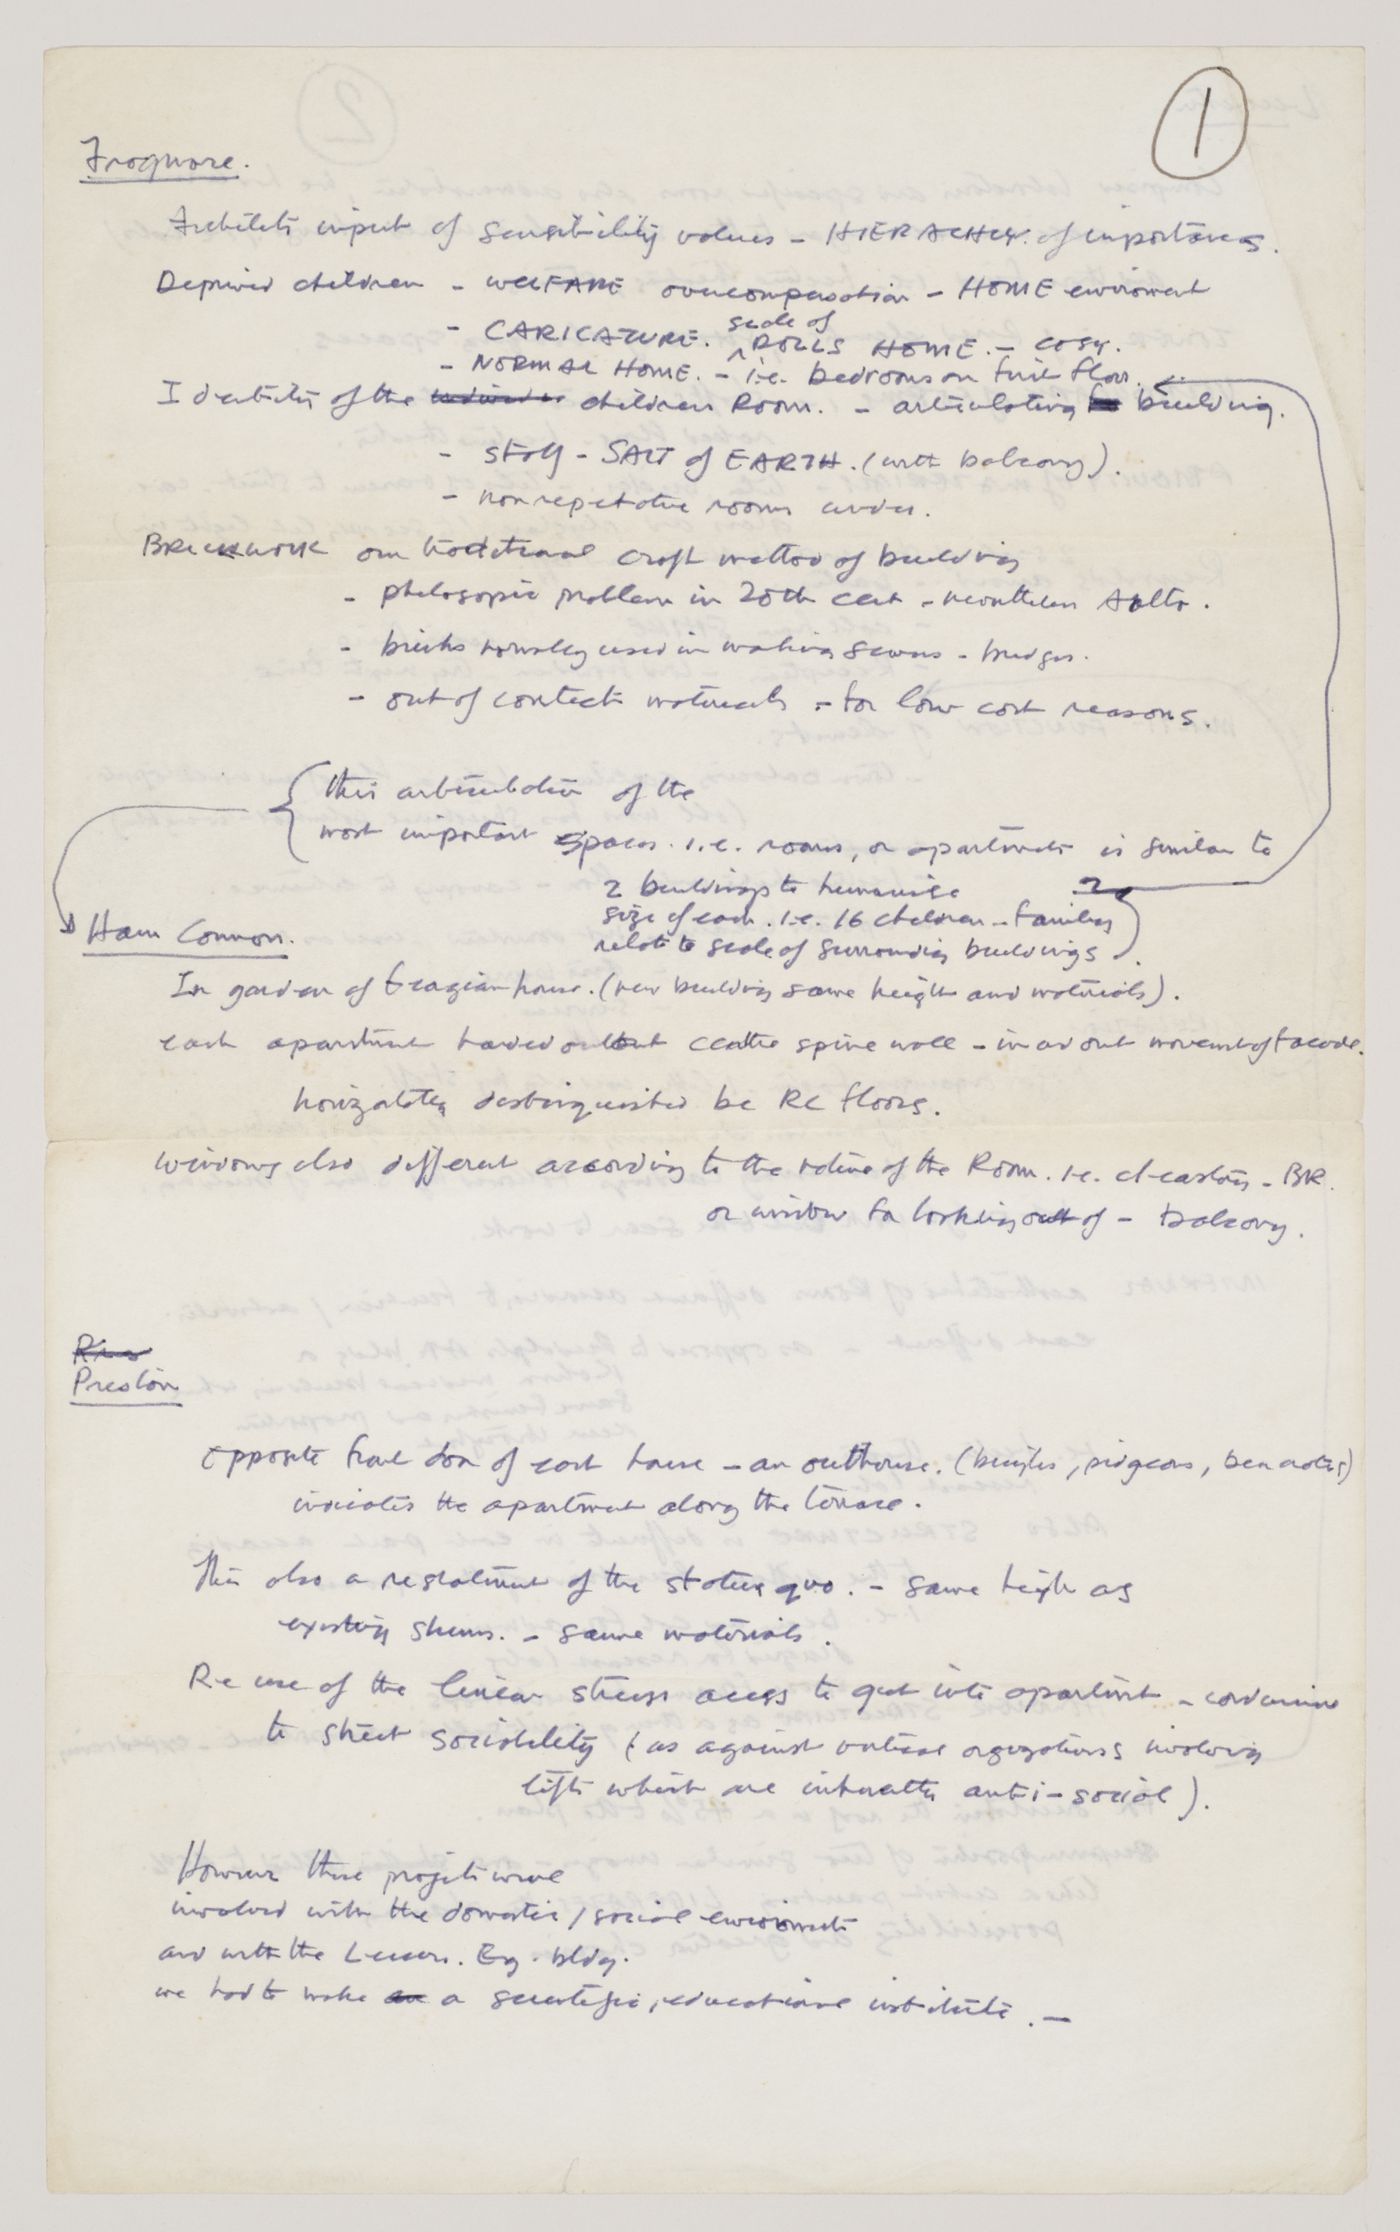 1
Frogmore.
Architects input of sensibility values - HIERACHEY. of importances.
Deprived children - WELFARE overcompensation - HOME enviroment
- CARICATURE. scale of DOLLS HOME. - cosy.
- NORMAL HOME. - i.e. bedrooms on first floor.
Identity of the children Room. - articulating building.
- staff - SALT of EARTH. (with balcony).
- non repetative rooms under.
BRICKWORK our traditional craft method of building
- philosopic problem in 20th cent - Aalto.
- bricks normaly used in making sewers - bridges.
- out of context materials - for low cost reasons.
this articulation of the
most important spaces. i.e. rooms, or apartments is similar to
2 buildings to humanise
size of each. i.e. 16 children - families
relate to scale of surrounding buildings.
Ham Common.
In garden of Georgian house. (new building same height and materials).
each apartment centre spine wall - in and out movement of facade.
horizontaly distinguished be RC floors.
Windows also different according to the nature of the Room. i.e. - BR.
or window for looking out of - balcony.
Preston
opposite front door of each house - an outhouse. (bicycles, pidgeons, )
indicates the apartment along the terrace.
This also a restatment of the status quo. - same high as
existing slums. - same materials.
Re use of the linear street access to get into apartment - conducive
to street sociability (as against vertical organizations involving
lifts which are inherently anti-social).
However these projects were
involved with the domestic / social enviroment
and with the Leices. Eng. bldg.
we had to make a scientific, educational institute. -